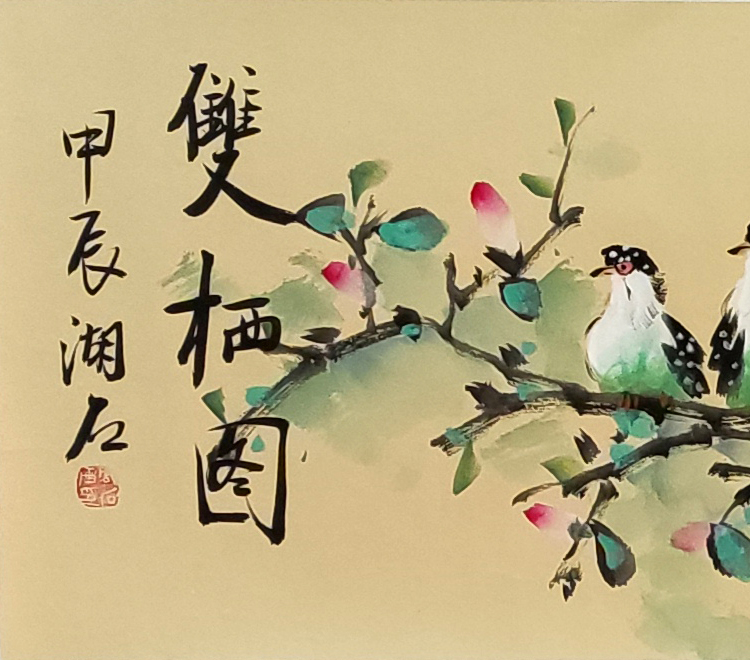 雙栖图
甲辰湖石